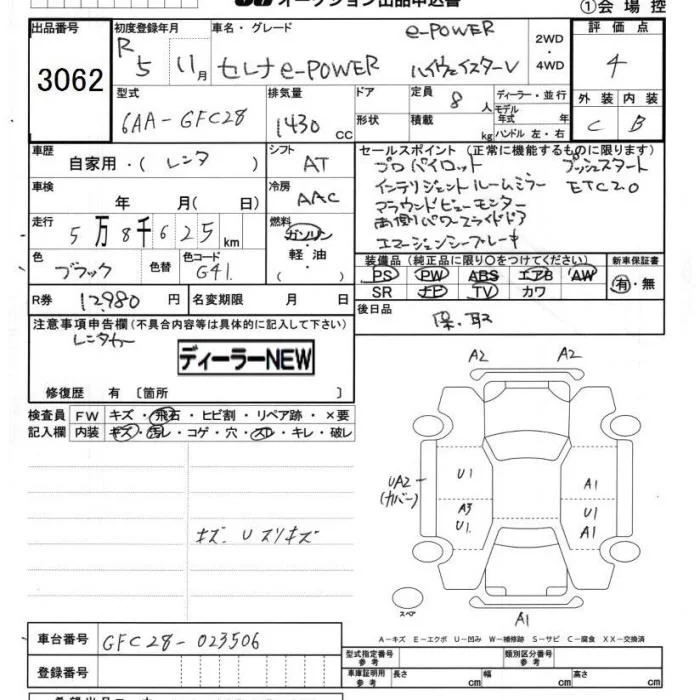 オークション出品申込書
①会場控
出品番号 3062
初度登録年月 R5 11月
車名・グレード セレナe-POWER e-POWER ハイウェイスターV
2WD ・ 4WD
評価点 4
外装 C 内装 B
型式 6AA-GFC28
排気量 1430 CC
ドア 形状
定員 8 人
積載 kg
ディーラー・並行
モデル年式 年
ハンドル 左・右
車歴 自家用・(レンタ)
シフト AT
セールスポイント (正常に機能するものに限ります)
プロパイロット プッシュスタート
インテリジェントルームミラー ETC2.0
アラウンドビューモニター
両側パワースライドドア
エマージェンシーブレーキ
車検 年 月( 日)
冷房 AAC
走行 5万8千625km
燃料 ガソリン・軽油・( )
色 ブラック 色替 色コード G41
装備品 (純正品に限り○をつけてください) 新車保証書
PS PW ABS エアB AW 有・無
SR ナビ TV カワ
R券 12,980 円 名変期限 月 日
後日品 保.取
注意事項申告欄(不具合内容等は具体的に記入して下さい)
レンタカー
ディーラーNEW
修復歴 有 〔箇所 〕
検査員記入欄 FW キズ・飛石・ヒビ割・リペア跡・×要
内装 キズ・汚レ・コゲ・穴・スレ・キレ・破レ
A2 A2
UA2 (カバー)
U1 A1
A3 U1 U1 A1
キズ. Uスリキズ
スペア
A1
A−キズ E−エクボ U−凹み W−補修跡 S−サビ C−腐食 XX−交換済
車台番号 GFC28-023506
登録番号
型式指定番号参考 類別区分番号参考
車庫証明用参考 長さ cm 幅 cm 高さ cm